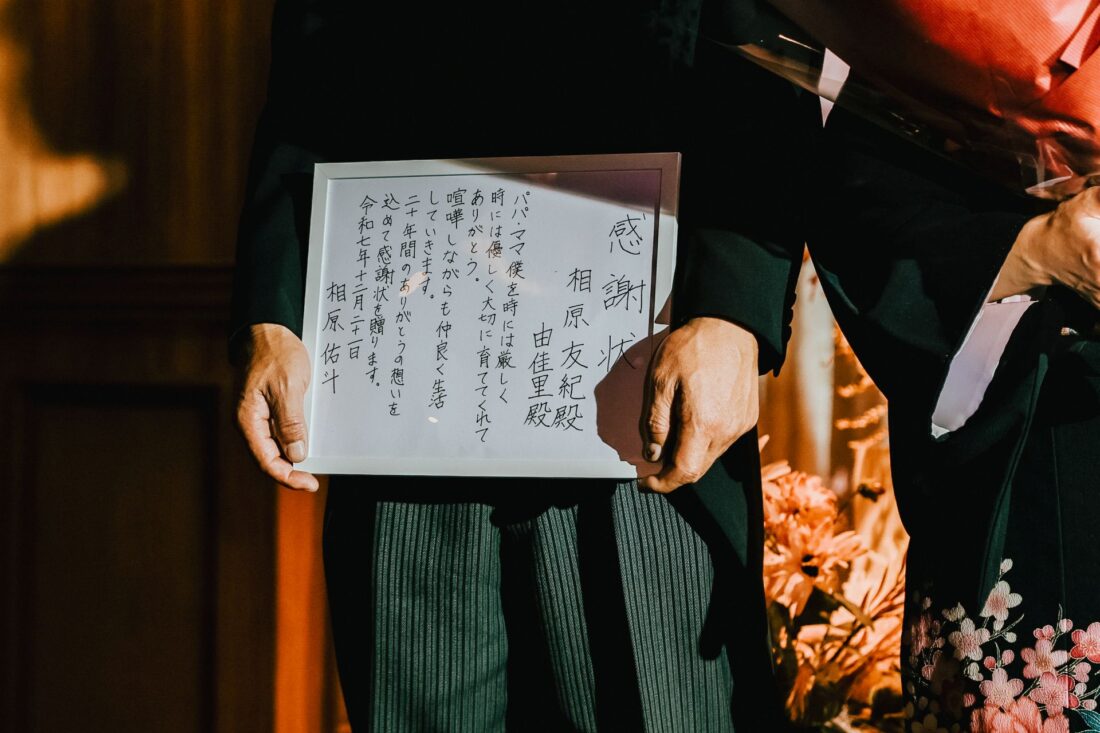 感謝状
相原友紀殿
由佳里殿
パパ・ママ僕を時には厳しく
時には優しく大切に育ててくれて
ありがとう。
喧嘩しながらも仲良く生活
していきます。
二十年間のありがとうの想いを
込めて感謝状を贈ります。
令和七年十二月二十一日
相原佑斗